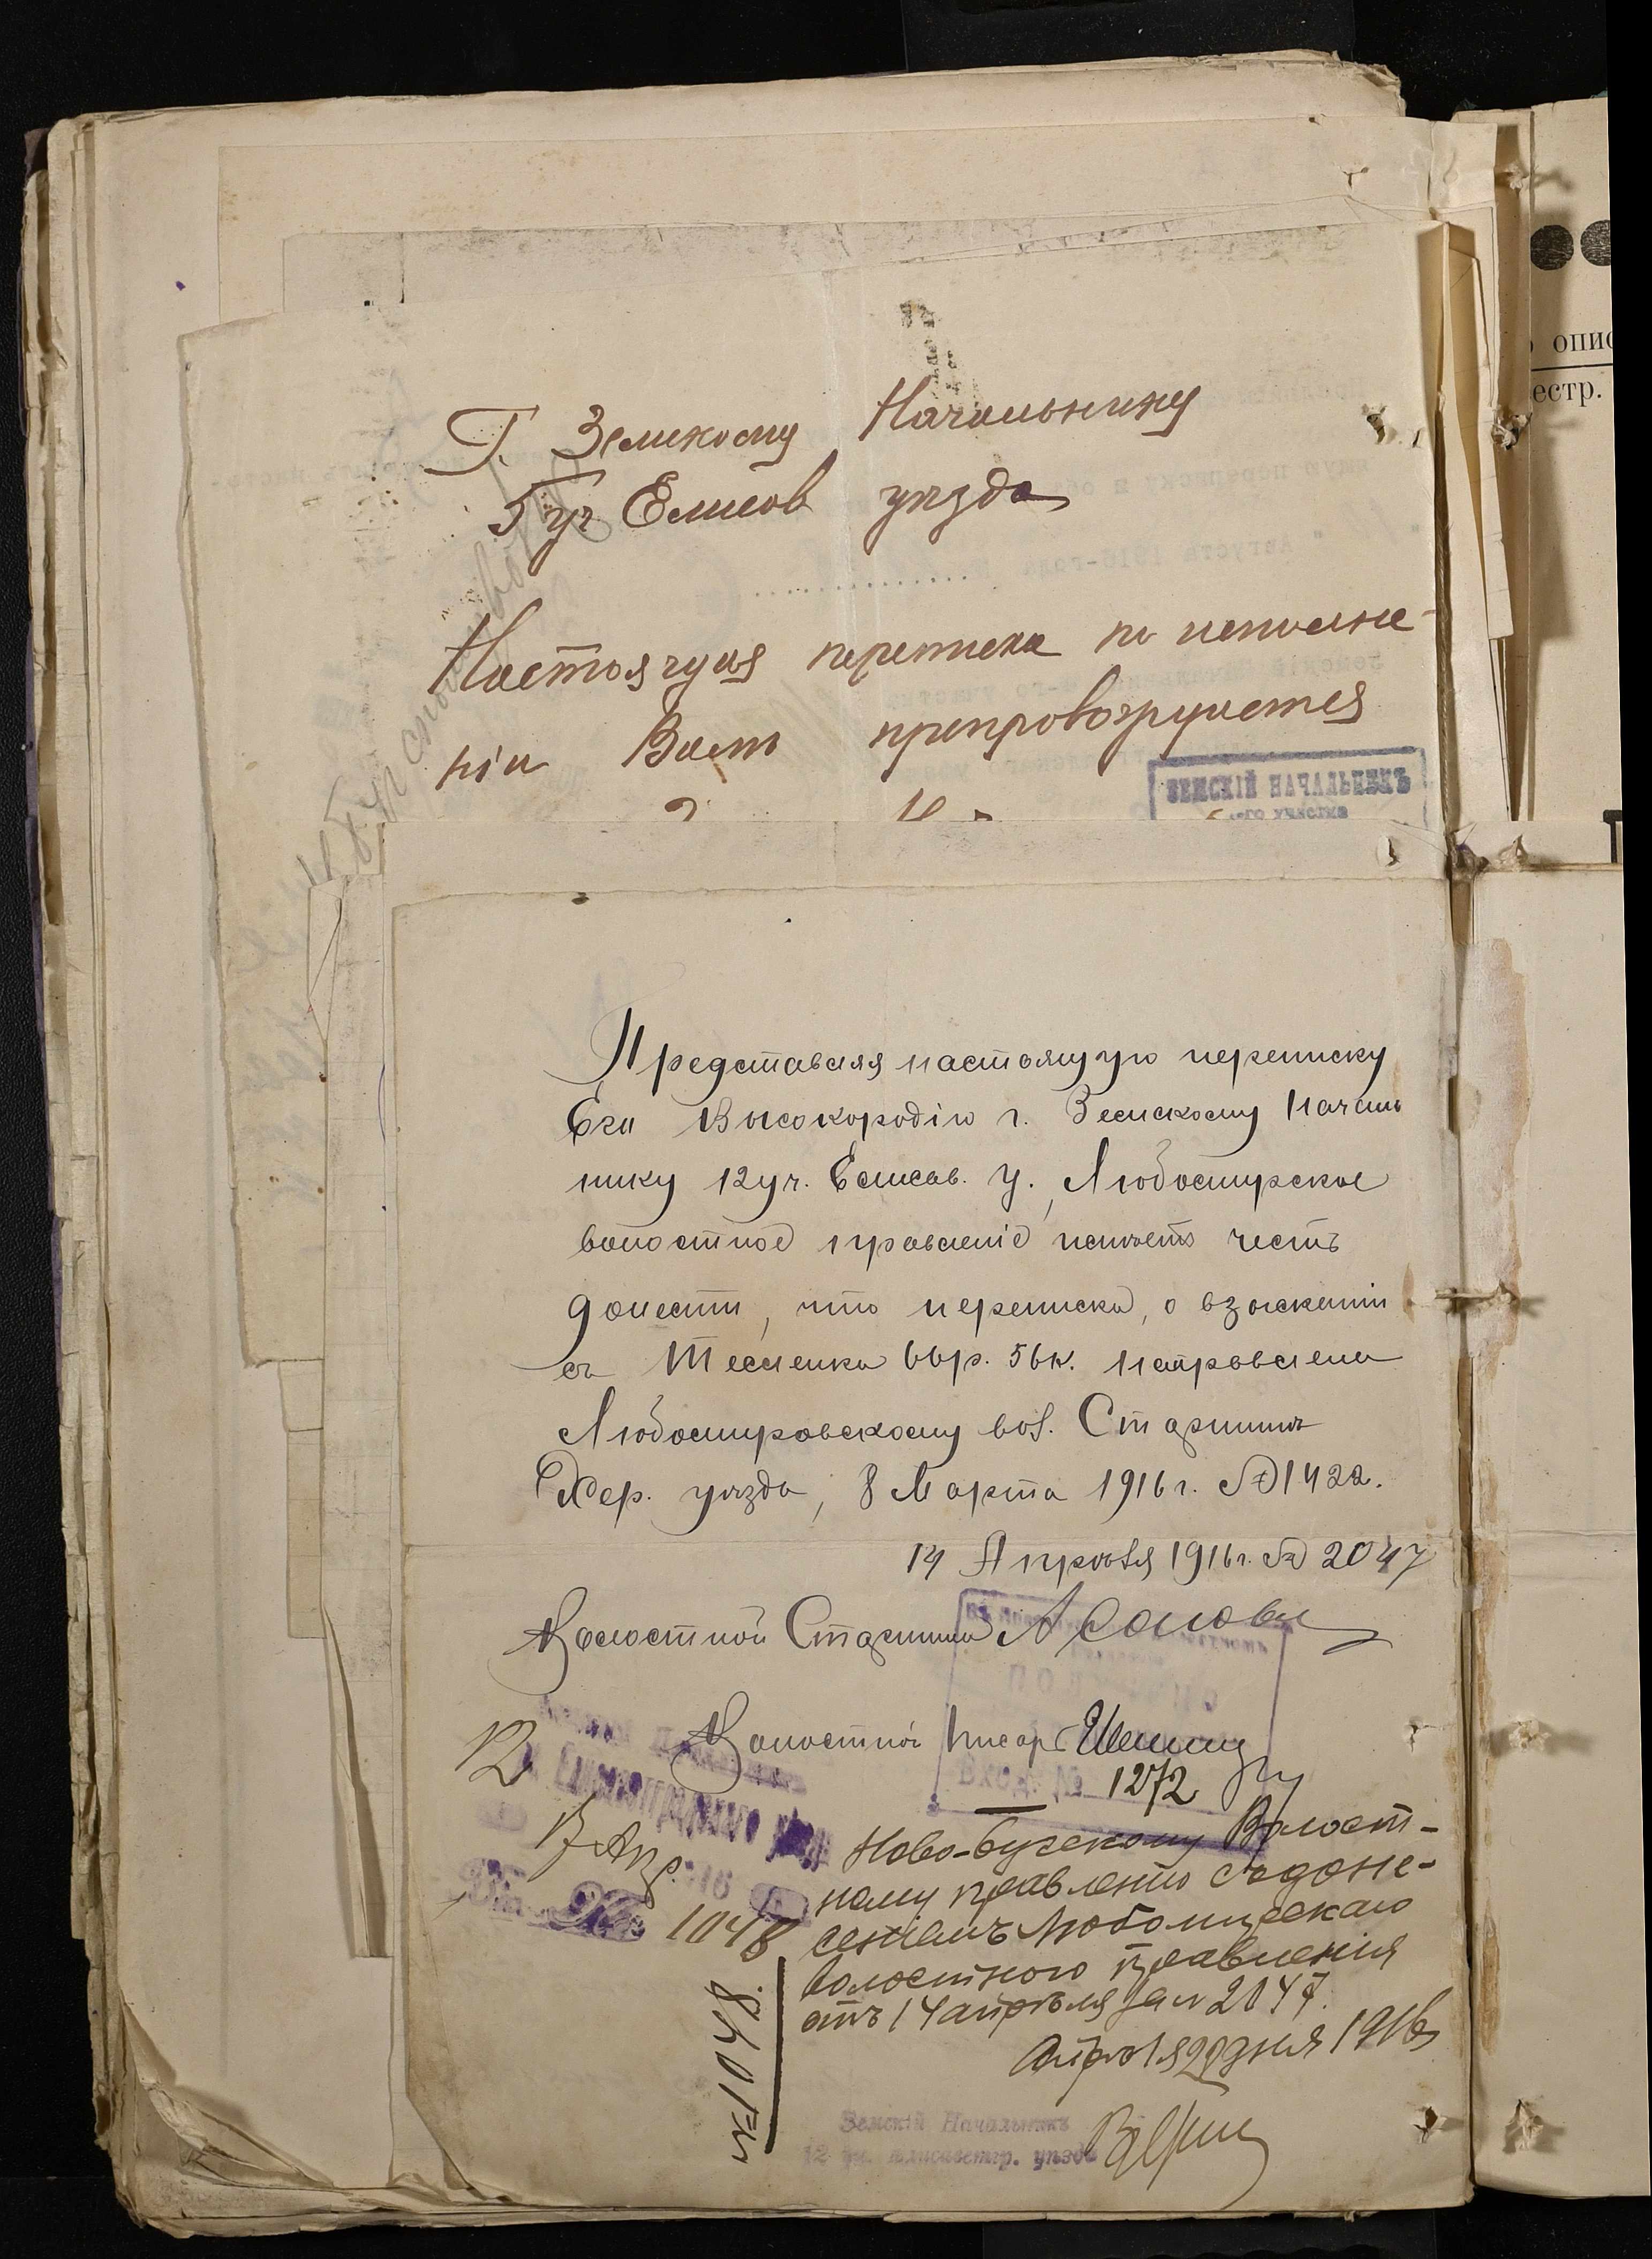 Г. Земскому Начальнику
5 уч Елисов уѣзда
Настоящая переписка по исполне-
нiи Вамъ препровождается
ЗЕМСКIЙ НАЧАЛЬНИКЪ
-го участка
опис
естр.
Представляя настоящую переписку
Его Высокородiю г. Земскому Началь
нику 12 уч. Елисав. у., Любомирское
волостное правленiе имѣетъ честь
донести, что переписка, о взысканiи
съ Тесленка 66р. 56к. направлена
Любомировскому вол. Старшинѣ
Хер. уѣзда, 8 Марта 1916 г. № 1422.
14 Апрѣля 1916 г. № 2047
Волостной Старшина
Волостной Писарь
Вход. № 1272
12
Елисаветградского уѣзда
17 Апр. 1916
1048
Ново-Бугскому Волост-
ному правленiю съ доне-
сенiемъ Любомирскаго
волостного правленiя
отъ 14 апрѣля за № 2047.
Апрѣля 22 дня 1916
№ 1048.
Земскiй Начальникъ
12 уч. Елисаветгр. уѣзда